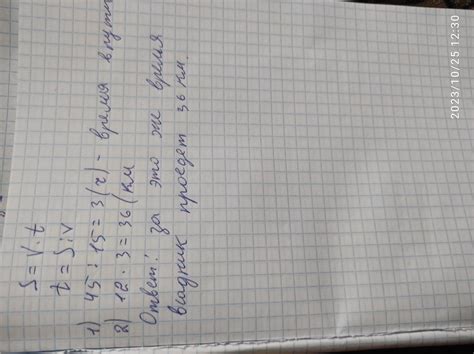 S=V·t
t=S:v
1) 45:15=3(ч)- время в пути
2) 12·3=36(км
Ответ: за это же время
всадник проедет 36 км.
2023/10/25 12:30